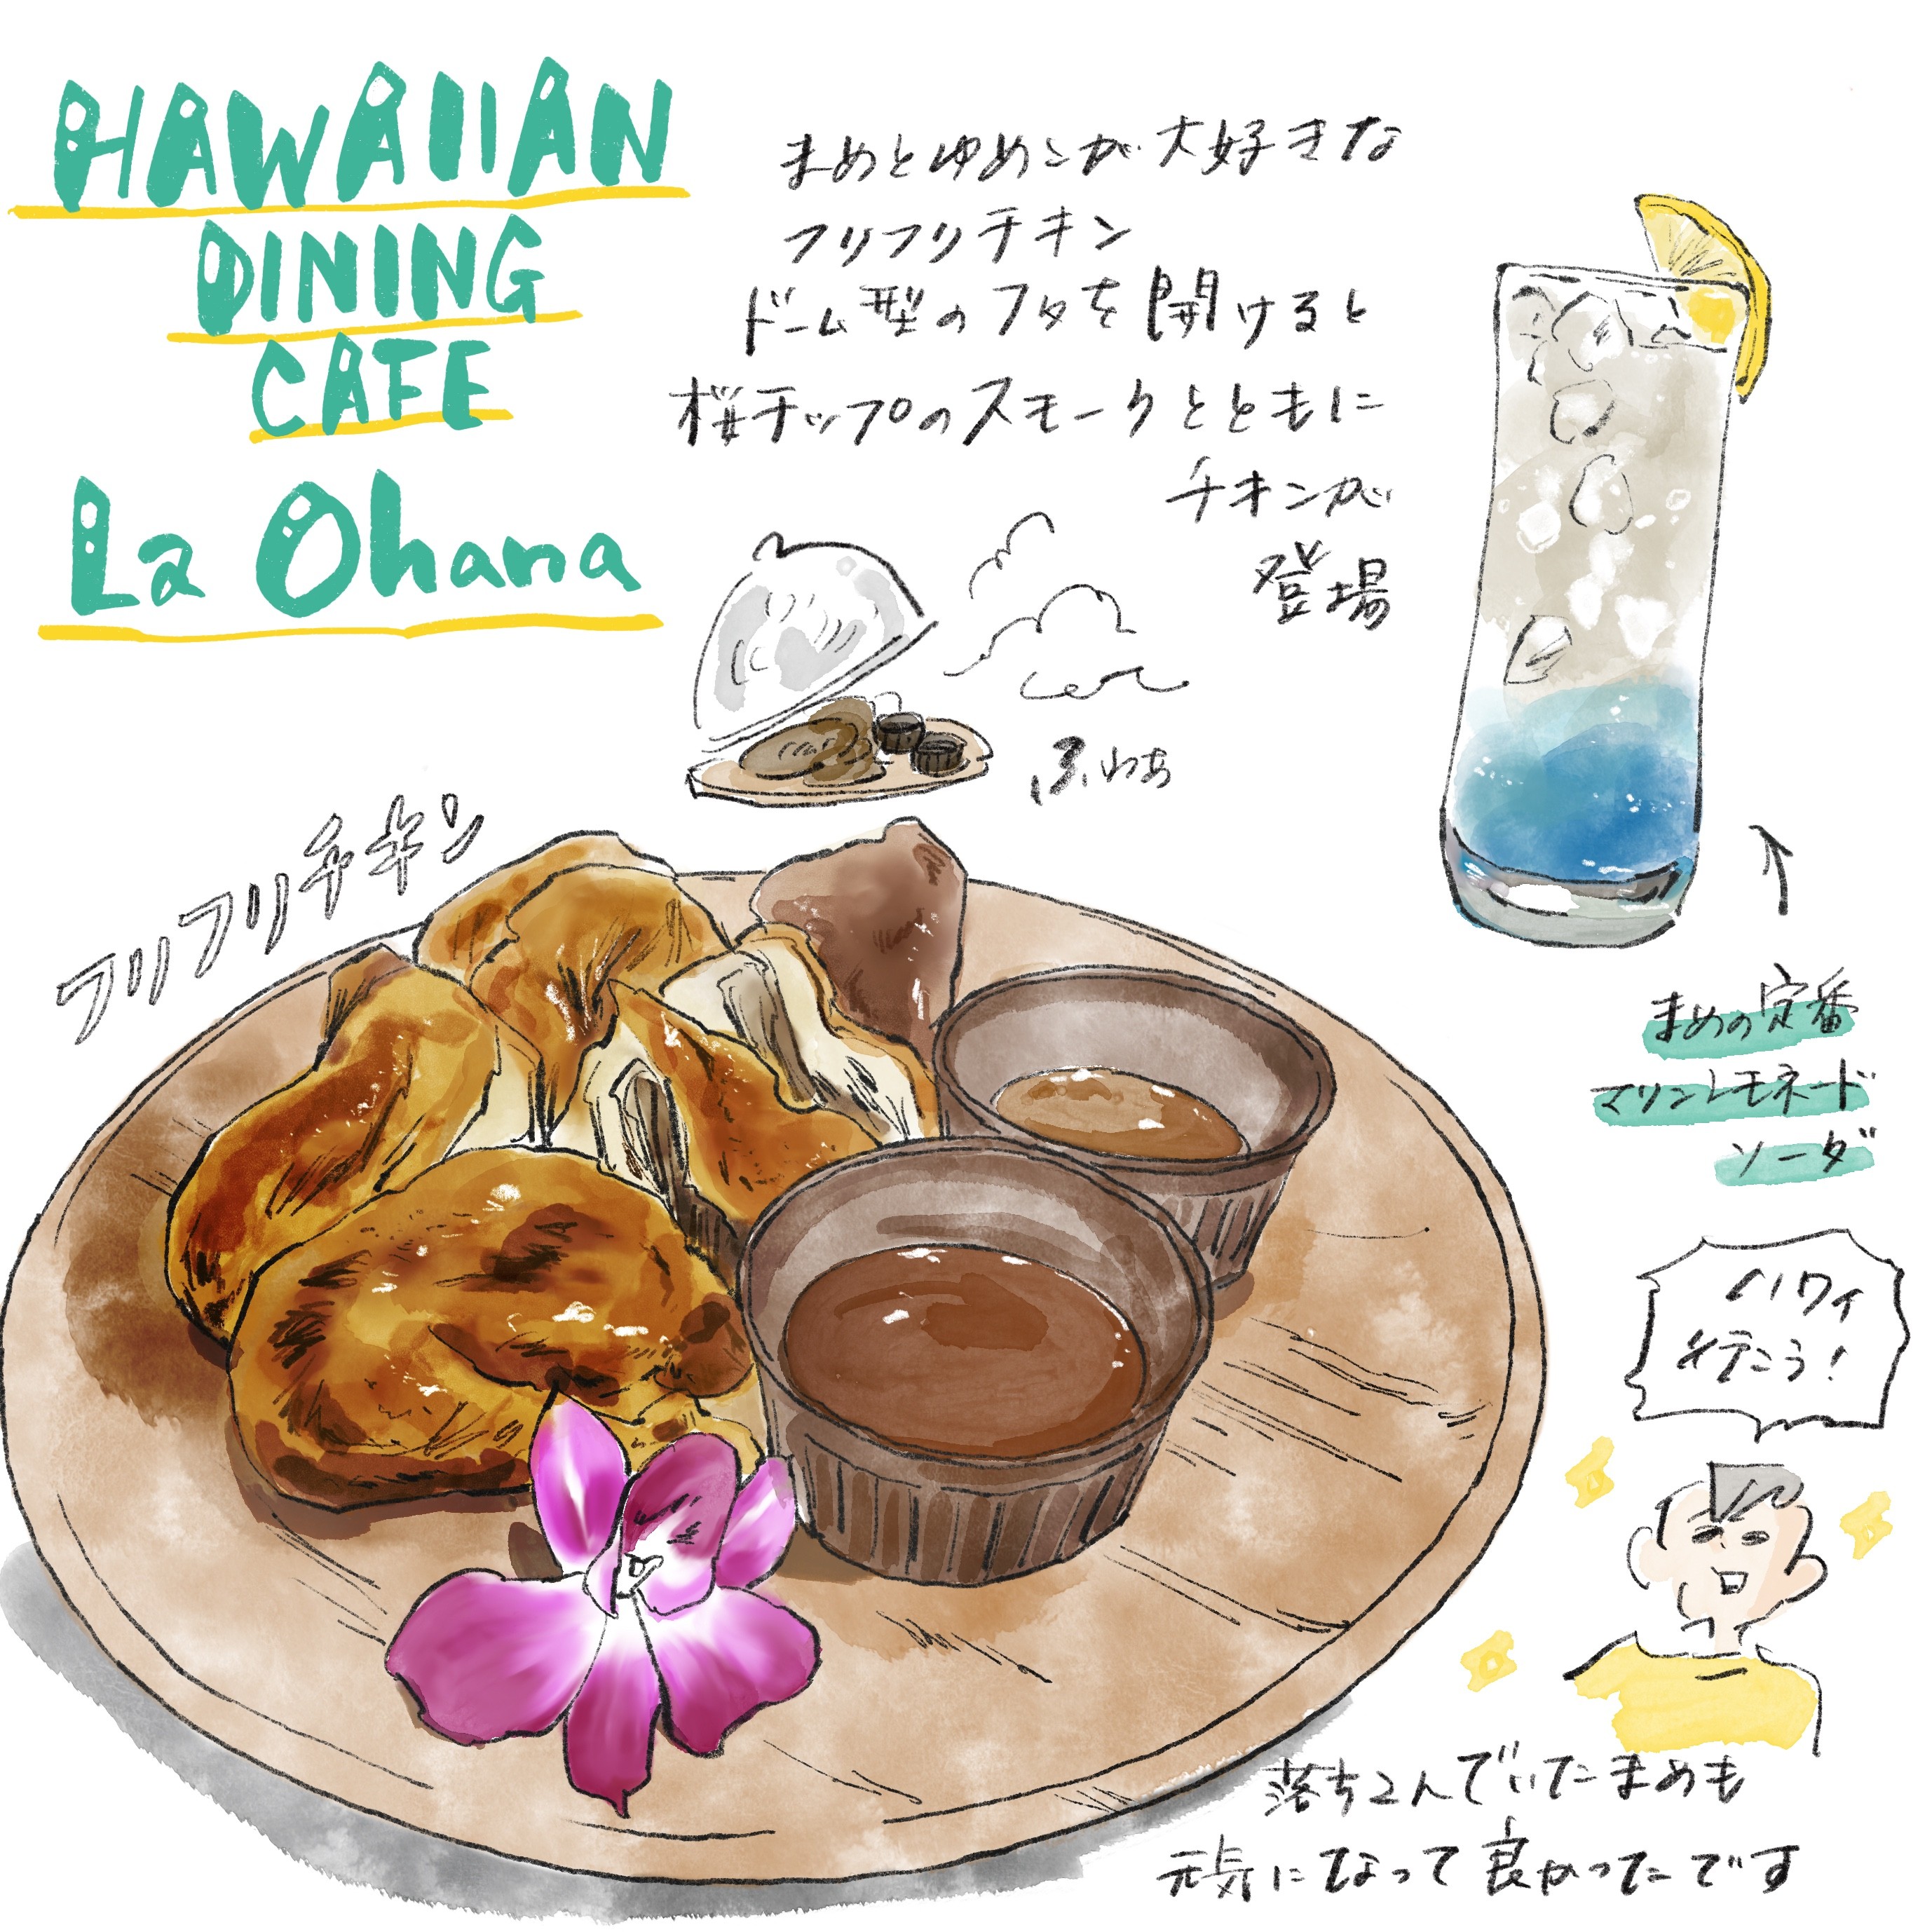 HAWAIIAN
DINING
CAFE
La Ohana
まめとゆめこが大好きな
フリフリチキン
ドーム型のフタを開けると
桜チップのスモークとともに
チキンが
登場
ふわぁ
フリフリチキン
まめの定番
マリンレモネード
ソーダ
ハワイ
行こう!
落ちこんでいたまめも
元気になって良かったです